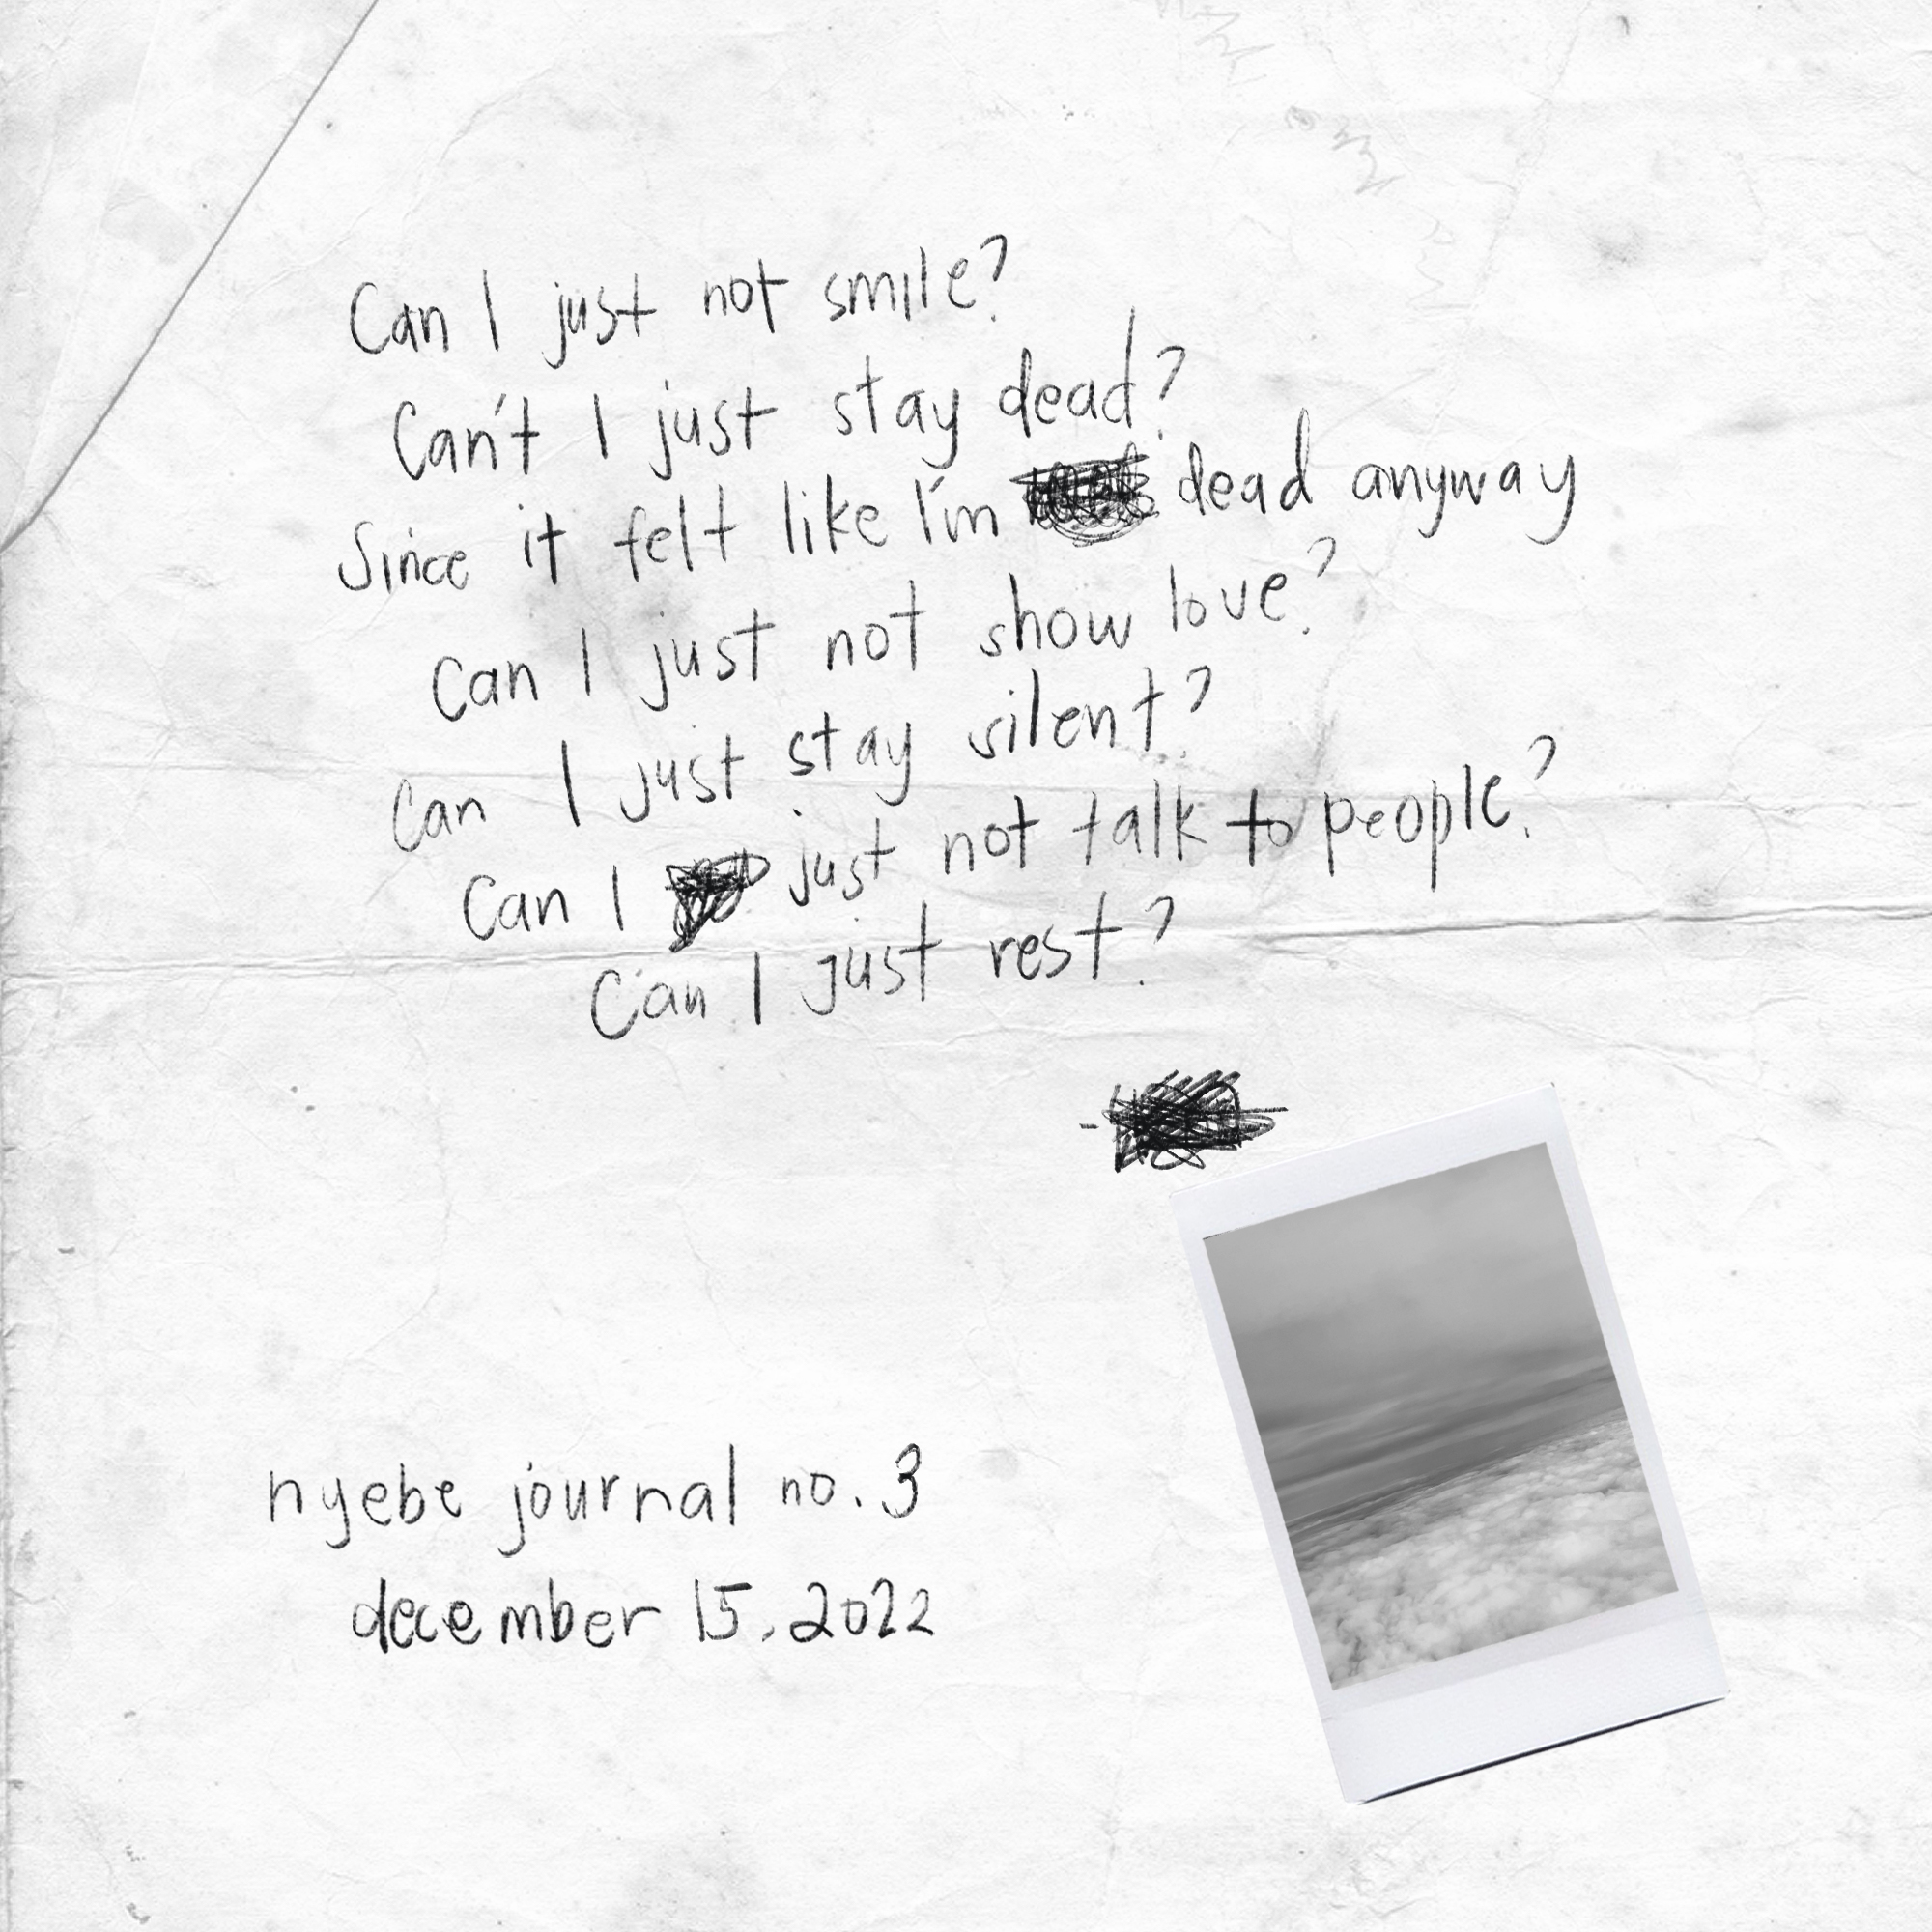 Can I just not smile?
Can't I just stay dead?
Since it felt like I'm dead anyway
Can I just not show love?
Can I just stay silent?
Can I just not talk to people?
Can I just rest?
nyebe journal no. 3
december 15, 2022